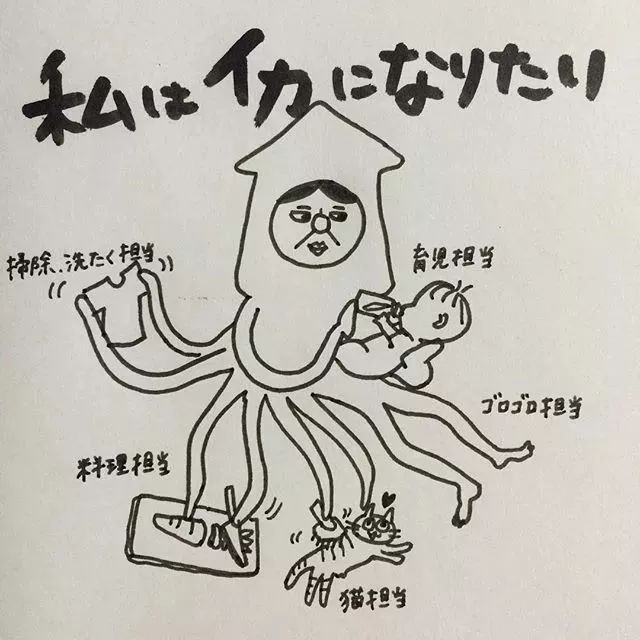 私はイカになりたい
掃除、洗たく担当
育児担当
ゴロゴロ担当
料理担当
猫担当